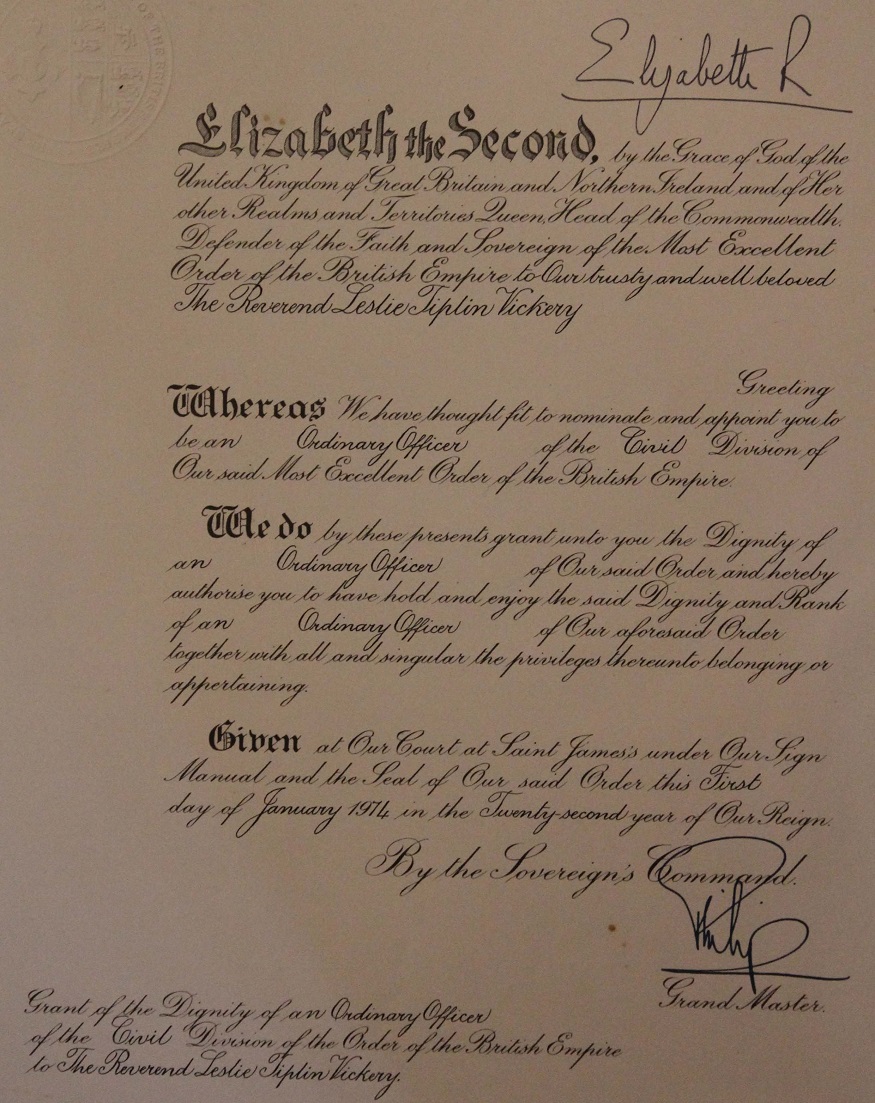 OF THE BRITISH
Elizabeth R
Elizabeth the Second, by the Grace of God of the
United Kingdom of Great Britain and Northern Ireland and of Her
other Realms and Territories Queen, Head of the Commonwealth,
Defender of the Faith and Sovereign of the Most Excellent
Order of the British Empire to Our trusty and well beloved
The Reverend Leslie Tiplin Vickery
Greeting
Whereas We have thought fit to nominate and appoint you to
be an Ordinary Officer of the Civil Division of
Our said Most Excellent Order of the British Empire.
We do by these presents grant unto you the Dignity of
an Ordinary Officer of Our said Order and hereby
authorise you to have hold and enjoy the said Dignity and Rank
of an Ordinary Officer of Our aforesaid Order
together with all and singular the privileges thereunto belonging or
appertaining.
Given at Our Court at Saint James's under Our Sign
Manual and the Seal of Our said Order this First
day of January 1974 in the Twenty-second year of Our Reign.
By the Sovereign's Command.
Philip
Grand Master.
Grant of the Dignity of an Ordinary Officer
of the Civil Division of the Order of the British Empire
to The Reverend Leslie Tiplin Vickery.